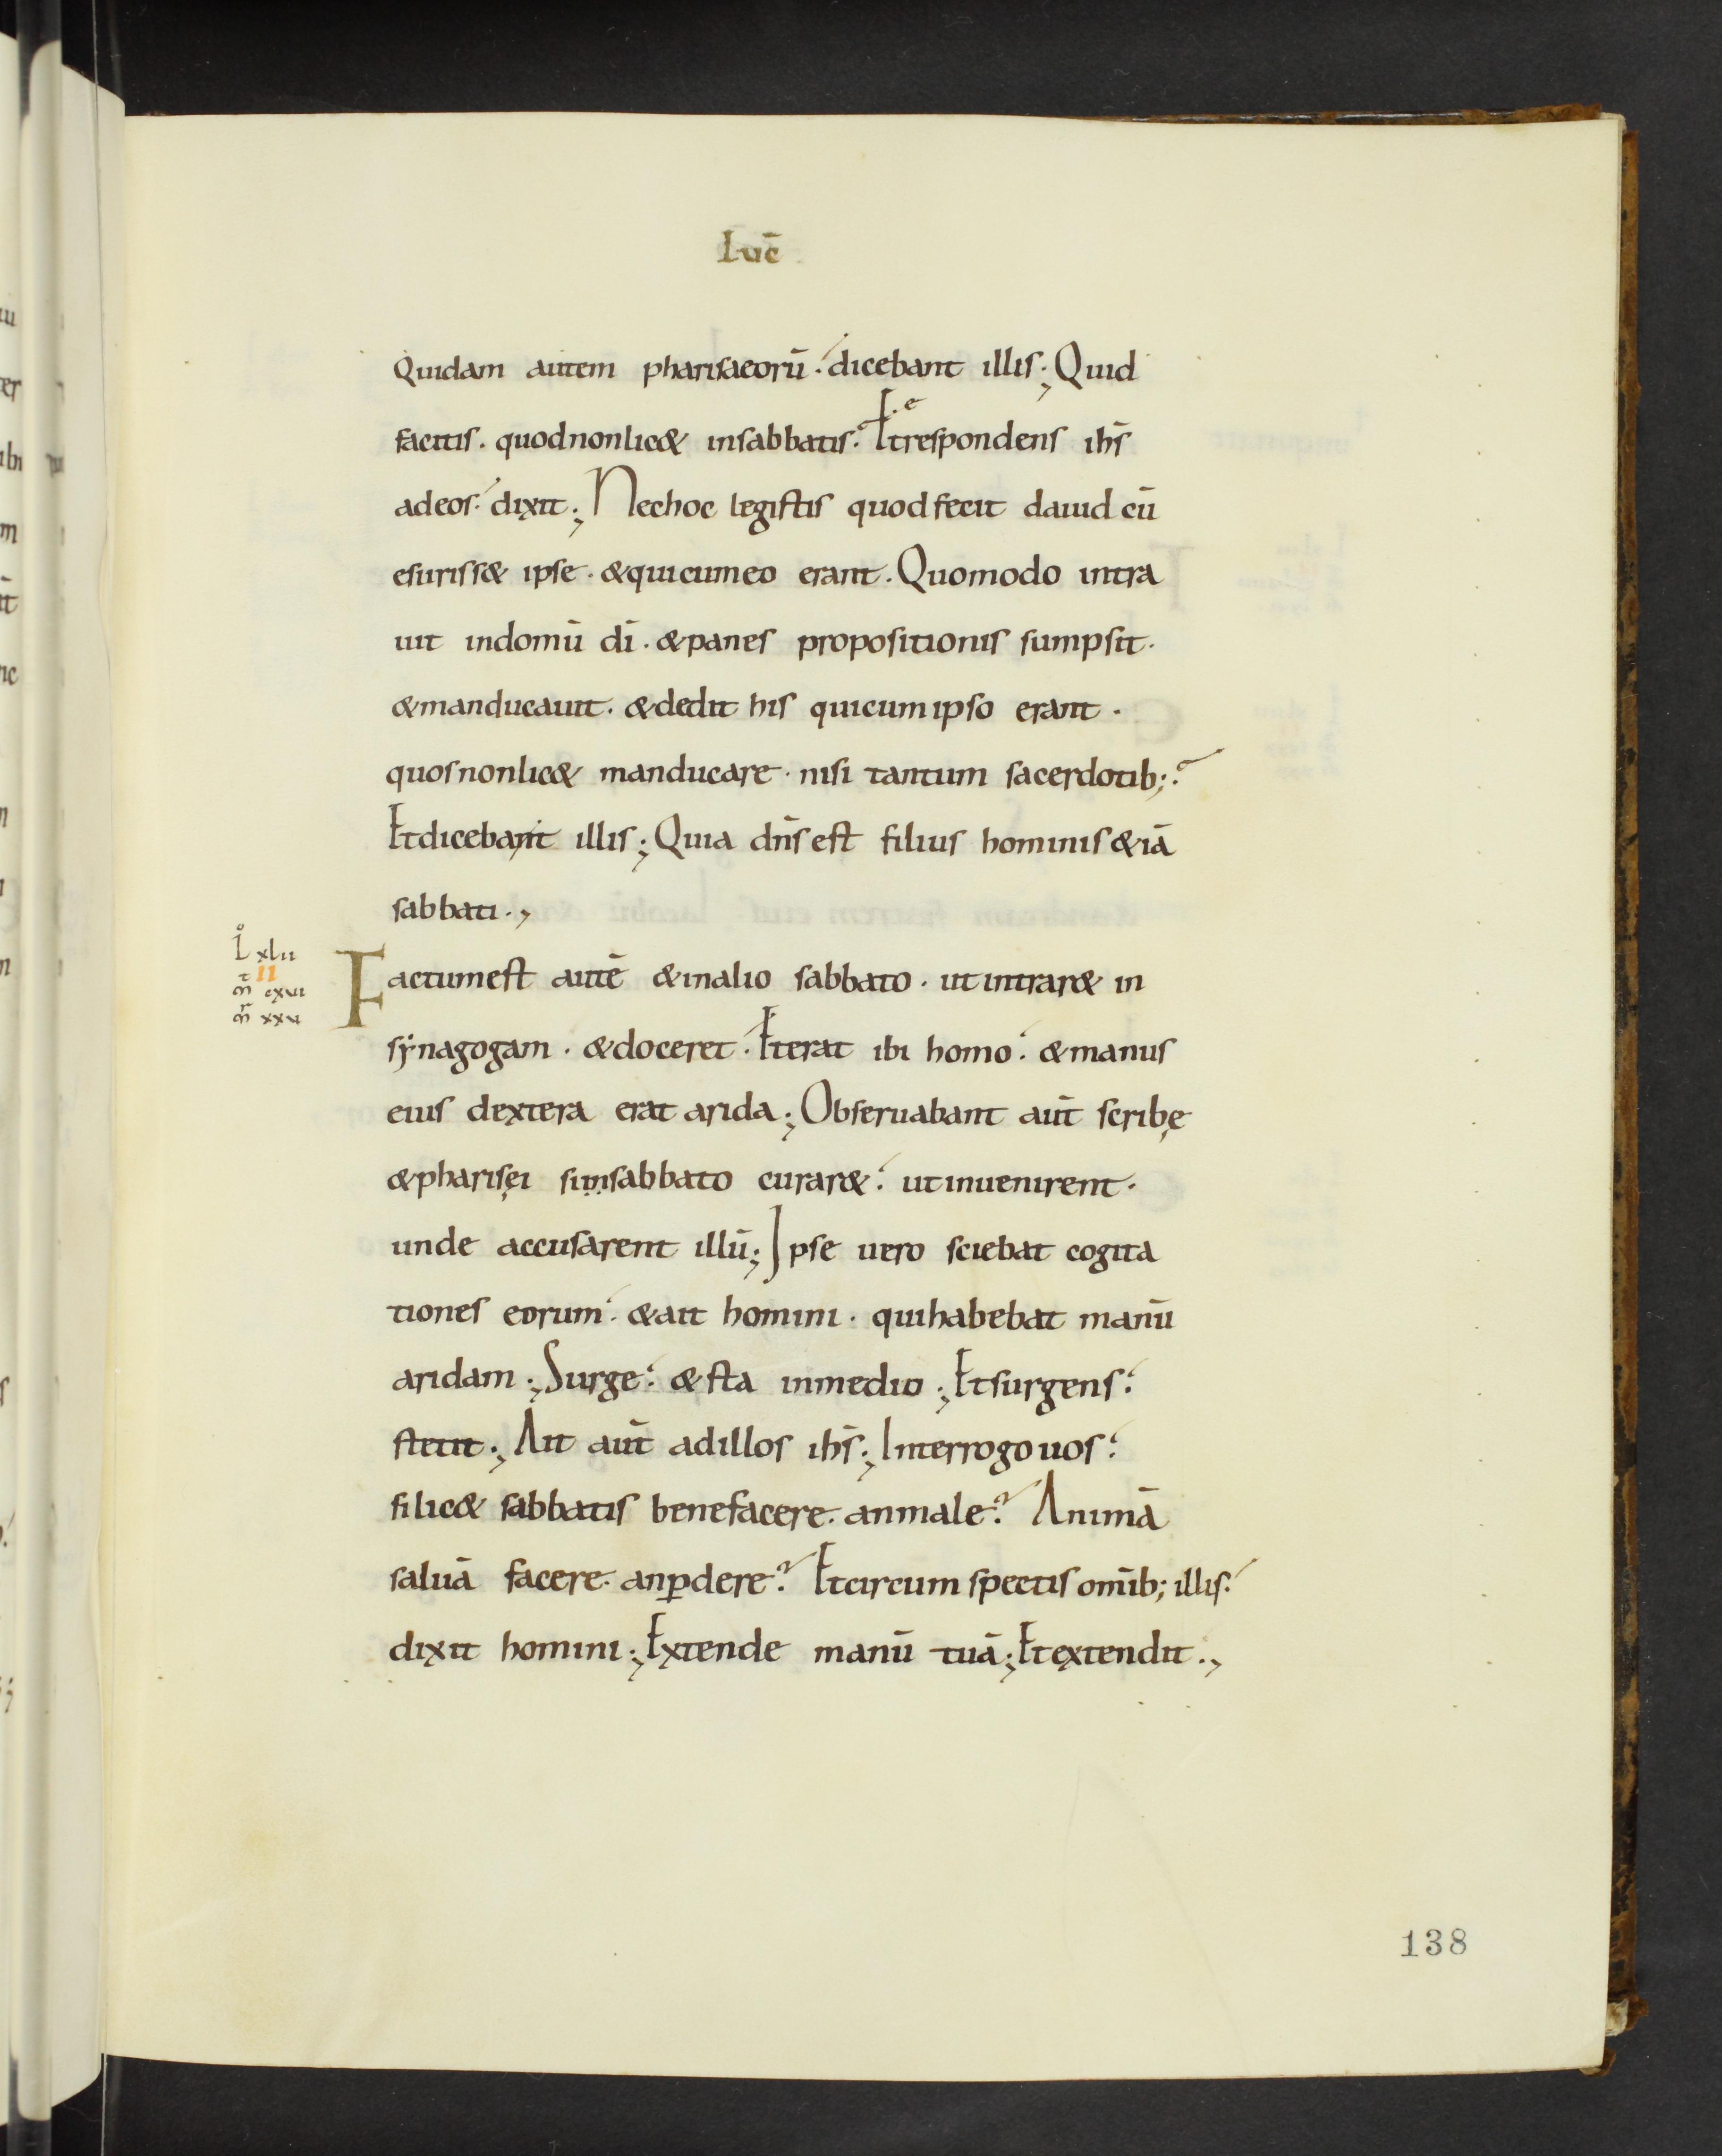 Luc̄
Quidam autem pharisaeorū. dicebant illis; Quid
facitis. quodnonlic& insabbatis. Etrespondens ihs̄
adeos. dixit; Nechoc legistis quodfecit dauid cū
esuriss& ipse. &quicumeo erant. Quomodo intra
uit indomū dī. &panes propositionis sumpsit.
&manducauit. &dedit his quicumipso erant.
quosnonlic& manducare. nisi tantum sacerdotib;.
Etdicebant illis; Quia dn̄s est filius hominis &iā
sabbati.,
L xlii
II
m cxvi
m xxv
Factumest autē &inalio sabbato. utintrar& in
synagogam. &doceret. Eterat ibi homo. &manus
eius dextera erat arida; Obseruabant aut̄ scribę
&pharisęi siinsabbato curar&. utinuenirent.
unde accusarent illū; Ipse uero sciebat cogita
tiones eorum. &ait homini. quihabebat manū
aridam; Surge. &sta inmedio; Etsurgens.
stetit; Ait aut̄ adillos ihs̄; Interrogo uos.
silic& sabbatis benefacere. anmale? Animā
saluā facere. anꝑdere? Etcircumspectis omīb; illis.
dixit homini; Extende manū tuā; Etextendit.,
138